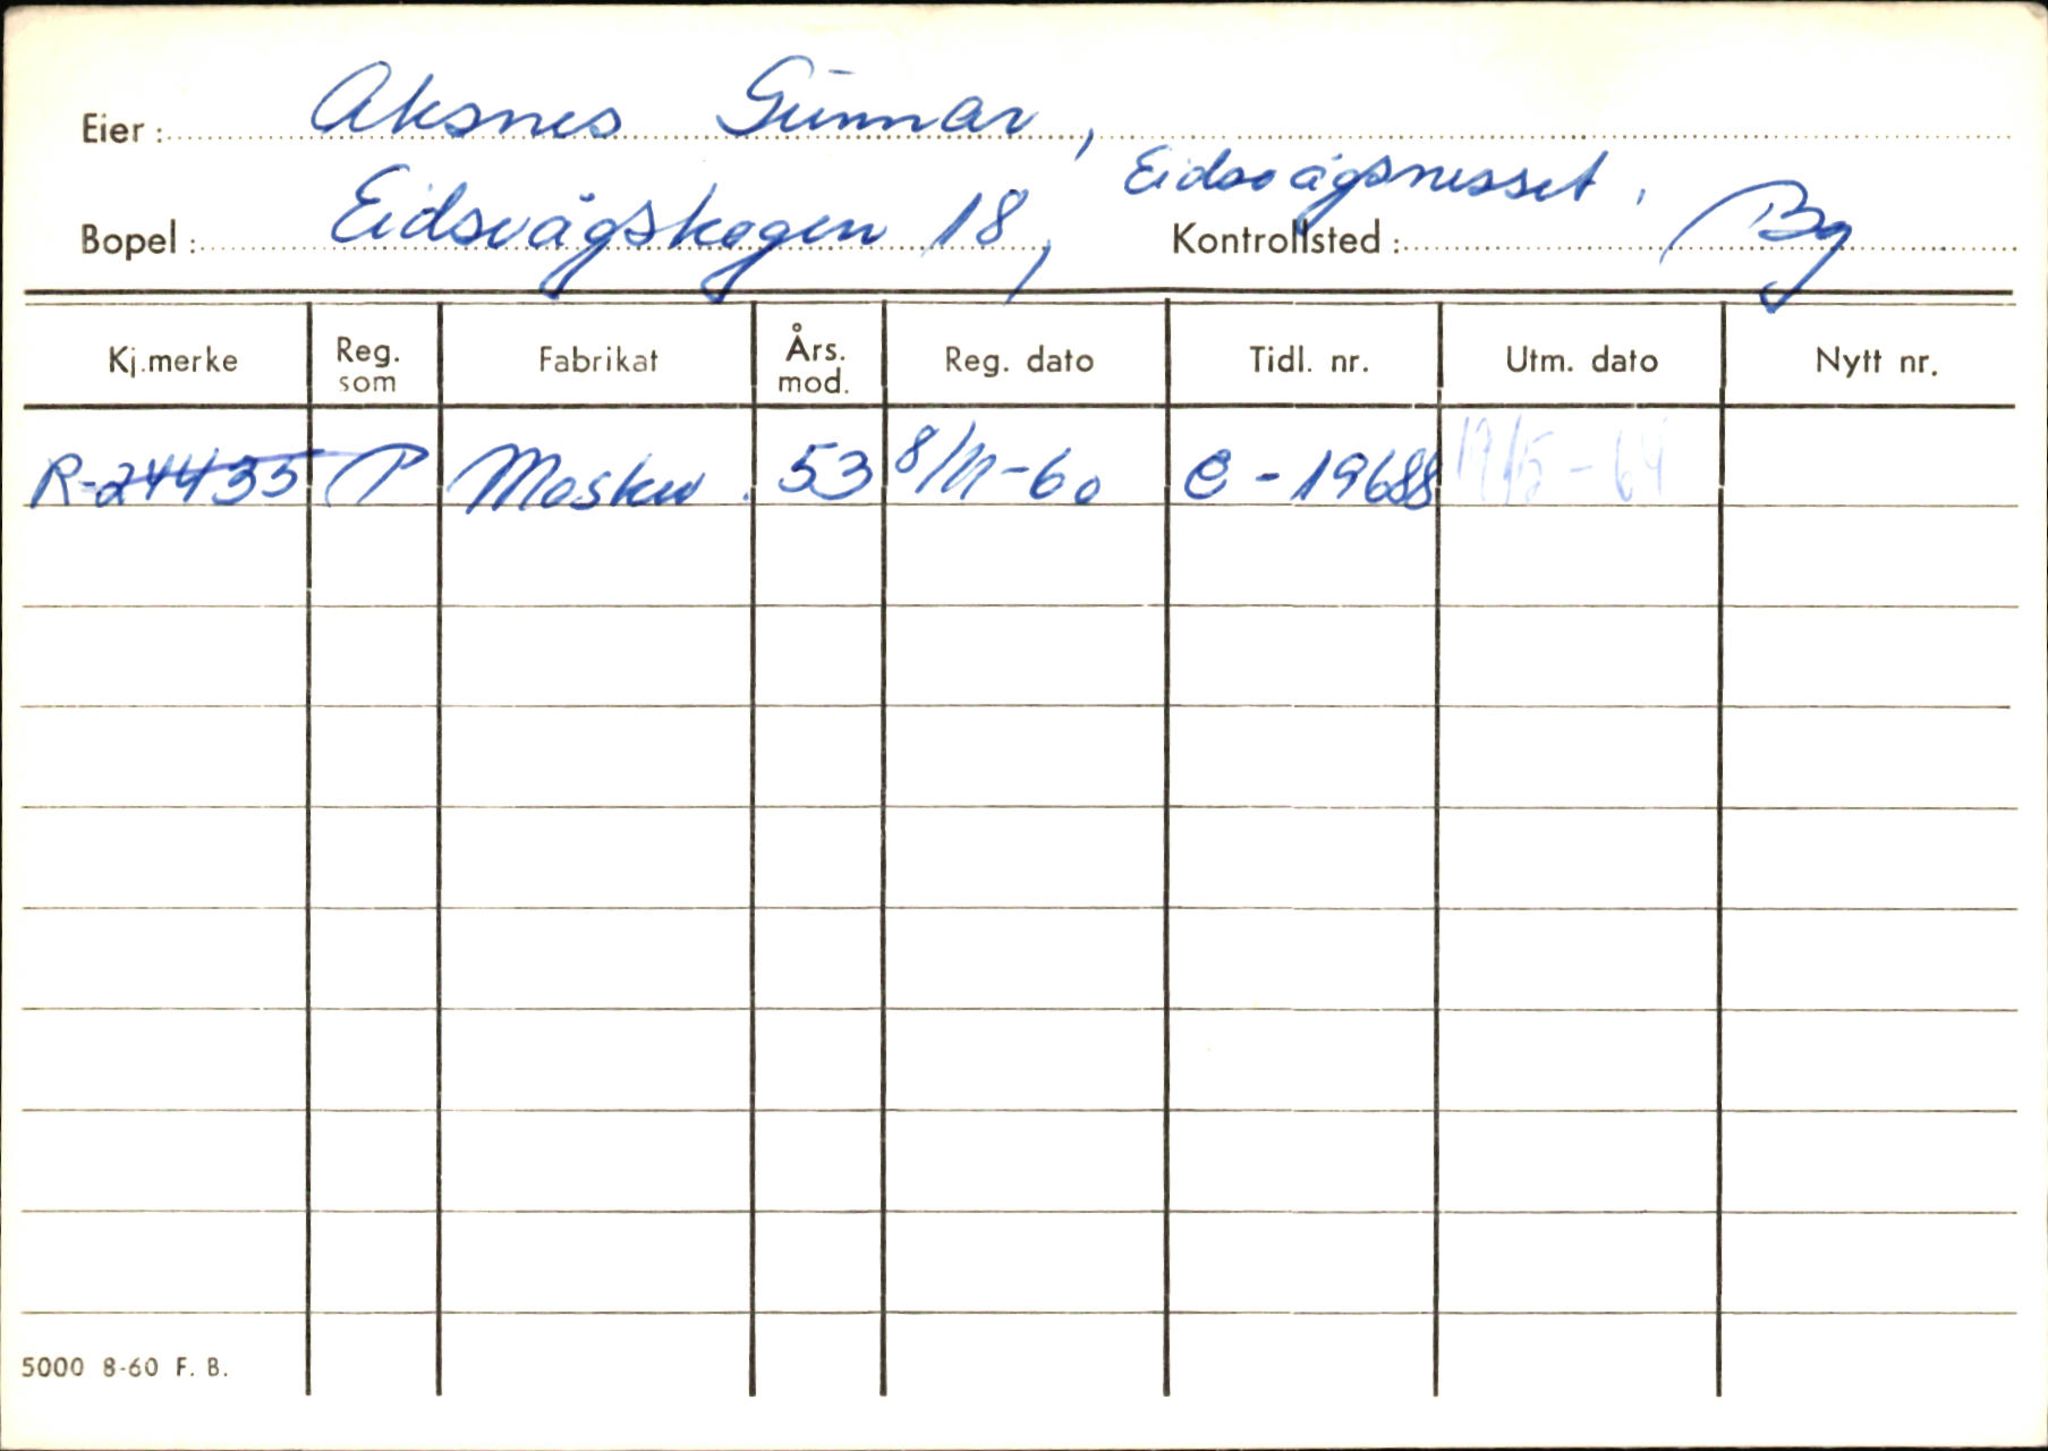 Eier: Aksnes Gunnar,
Eidsvågsnesset.
Bopel: Eidsvågskogen 18, Kontrollsted: Bg
Kj.merke Reg. som Fabrikat Års. mod. Reg. dato Tidl. nr. Utm. dato Nytt nr.
R-24435 P Moskw. 53 8/11-60 C-19688 19/5-64
5000 8-60 F. B.